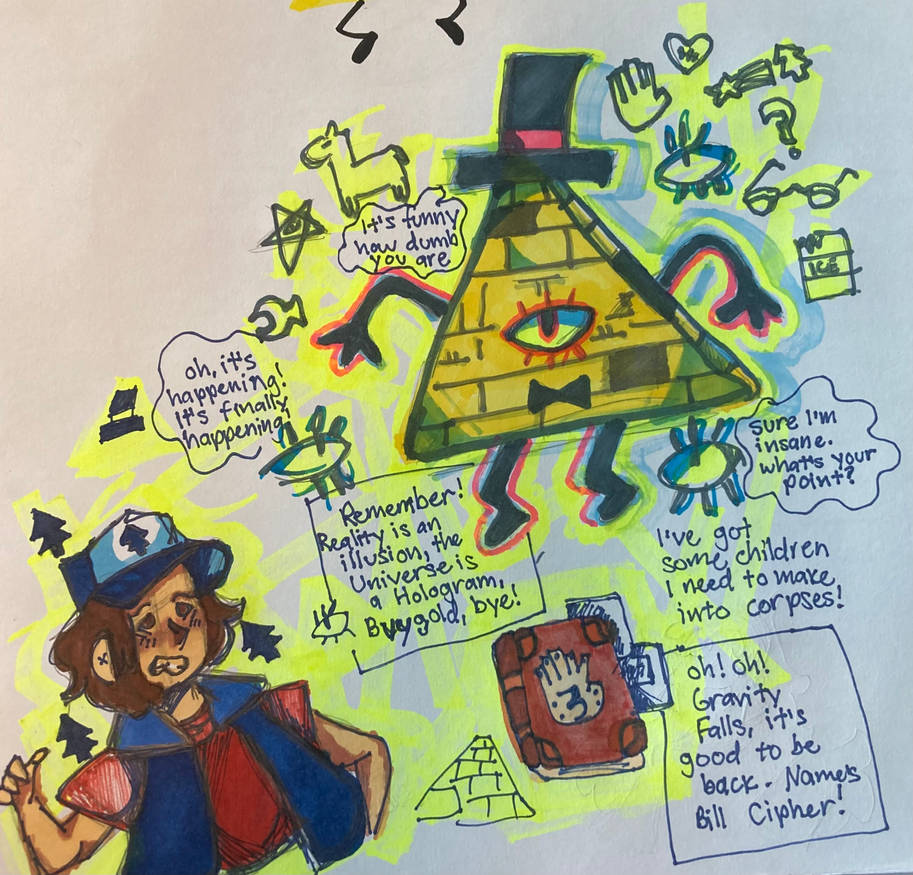 It's funny
how dumb
you are
ICE
oh, it's
happening!
It's finally
happening!
sure I'm
insane.
what's your
point?
Remember!
Reality is an
illusion, the
Universe is
a Hologram,
Buy gold, bye!
I've got
some children
I need to make
into corpses!
3
oh! oh!
Gravity
Falls, it's
good to be
back. Name's
Bill Cipher!